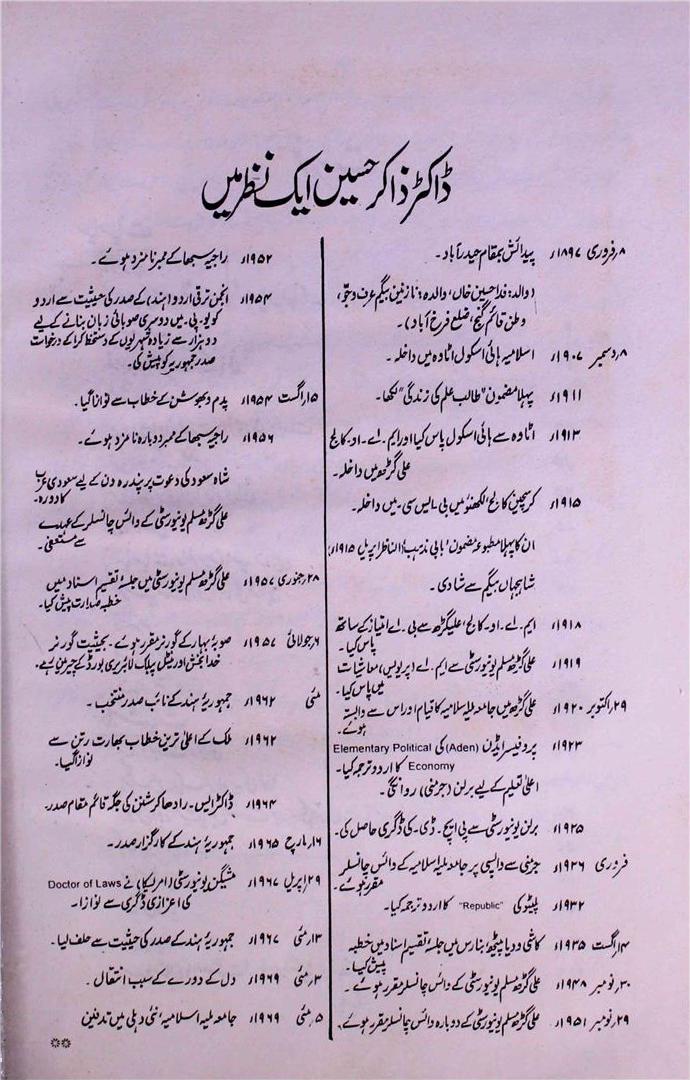 ڈاکٹر ذاکر حسین ایک نظر میں
۸؍فروری ۱۸۹۷ء پیدائش بمقام حیدرآباد۔
(والد: فدا حسین خاں، والدہ: نازنین بیگم عرف
وطن قائم گنج، ضلع فرخ آباد)۔
۸؍دسمبر ۱۹۰۷ء اسلامیہ ہائی اسکول اٹاوہ میں داخلہ۔
۱۹۱۱ء پہلا مضمون "طالب علم کی زندگی" لکھا۔
۱۹۱۳ء اٹاوہ سے ہائی اسکول پاس کیا اور ایم۔اے۔او۔کالج
علی گڑھ میں داخلہ۔
۱۹۱۵ء کرسچین کالج لکھنؤ میں بی۔ایس سی۔میں داخلہ۔
ان کا پہلا مطبوعہ مضمون 'بابی مذہب' (الناظر اپریل ۱۹۱۵ء)
شاہجہاں بیگم سے شادی۔
۱۹۱۸ء ایم۔اے۔او۔کالج، علیگڑھ سے بی۔اے امتیاز کے ساتھ
پاس کیا۔
۱۹۱۹ء علی گڑھ مسلم یونیورسٹی سے ایم۔اے (پریویس) معاشیات
میں پاس کیا۔
۲۹؍اکتوبر ۱۹۲۰ء علی گڑھ میں جامعہ ملیہ اسلامیہ کا قیام اور اس سے وابستہ
ہوئے۔
۱۹۲۳ء پروفیسر ایڈن (Aden) کی Elementary Political
Economy کا اردو ترجمہ کیا۔
اعلیٰ تعلیم کے لیے برلن (جرمنی) روانگی۔
۱۹۲۵ء برلن یونیورسٹی سے پی ایچ۔ڈی۔کی ڈگری حاصل کی۔
فروری ۱۹۲۶ء جرمنی سے واپسی پر جامعہ ملیہ اسلامیہ کے وائس چانسلر
مقرر ہوئے۔
۱۹۳۲ء پلیٹو کی "Republic" کا اردو ترجمہ کیا۔
۱۴؍اگست ۱۹۳۵ء کاشی ودیا پیٹھ، بنارس میں جلسۂ تقسیم اسناد میں خطبہ
پیش کیا۔
۳۰؍نومبر ۱۹۴۸ء علی گڑھ مسلم یونیورسٹی کے وائس چانسلر مقرر ہوئے۔
۲۹؍نومبر ۱۹۵۱ء علی گڑھ مسلم یونیورسٹی کے دوبارہ وائس چانسلر مقرر ہوئے۔
۱۹۵۲ء راجیہ سبھا کے ممبر نامزد ہوئے۔
۱۹۵۴ء انجمن ترقی اردو (ہند) کے صدر کی حیثیت سے اردو
کو یو۔پی۔میں دوسری صوبائی زبان بنانے کے لیے
دو ہزار سے زیادہ شہریوں کے دستخط کرا کے درخواست
صدر جمہوریہ کو پیش کی۔
۱۵؍اگست ۱۹۵۴ء پدم وبھوشن کے خطاب سے نوازا گیا۔
۱۹۵۶ء راجیہ سبھا کے ممبر دوبارہ نامزد ہوئے۔
شاہ سعود کی دعوت پر پندرہ دن کے لیے سعودی عرب
کا دورہ۔
علی گڑھ مسلم یونیورسٹی کے وائس چانسلر کے عہدے
سے مستعفی۔
۲۸؍جنوری ۱۹۵۷ء علی گڑھ مسلم یونیورسٹی میں جلسۂ تقسیم اسناد میں
خطبہ صدارت پیش کیا۔
۶؍جولائی ۱۹۵۷ء صوبۂ بہار کے گورنر مقرر ہوئے۔ بحیثیت گورنر
خدا بخش اورینٹل پبلک لائبریری بورڈ کے چیرمین رہے۔
مئی ۱۹۶۲ء جمہوریۂ ہند کے نائب صدر منتخب۔
۱۹۶۲ء ملک کے اعلیٰ ترین خطاب بھارت رتن سے
نوازا گیا۔
۱۹۶۴ء ڈاکٹر ایس۔رادھا کرشنن کی جگہ قائم مقام صدر۔
۱۶؍مارچ ۱۹۶۵ء جمہوریۂ ہند کے کارگزار صدر۔
۲۹؍اپریل ۱۹۶۷ء مشیگن یونیورسٹی (امریکا) نے Doctor of Laws
کی اعزازی ڈگری سے نوازا۔
۱۳؍مئی ۱۹۶۷ء جمہوریۂ ہند کے صدر کی حیثیت سے حلف لیا۔
۳؍مئی ۱۹۶۹ء دل کے دورے کے سبب انتقال۔
۵؍مئی ۱۹۶۹ء جامعہ ملیہ اسلامیہ، نئی دہلی میں تدفین
**